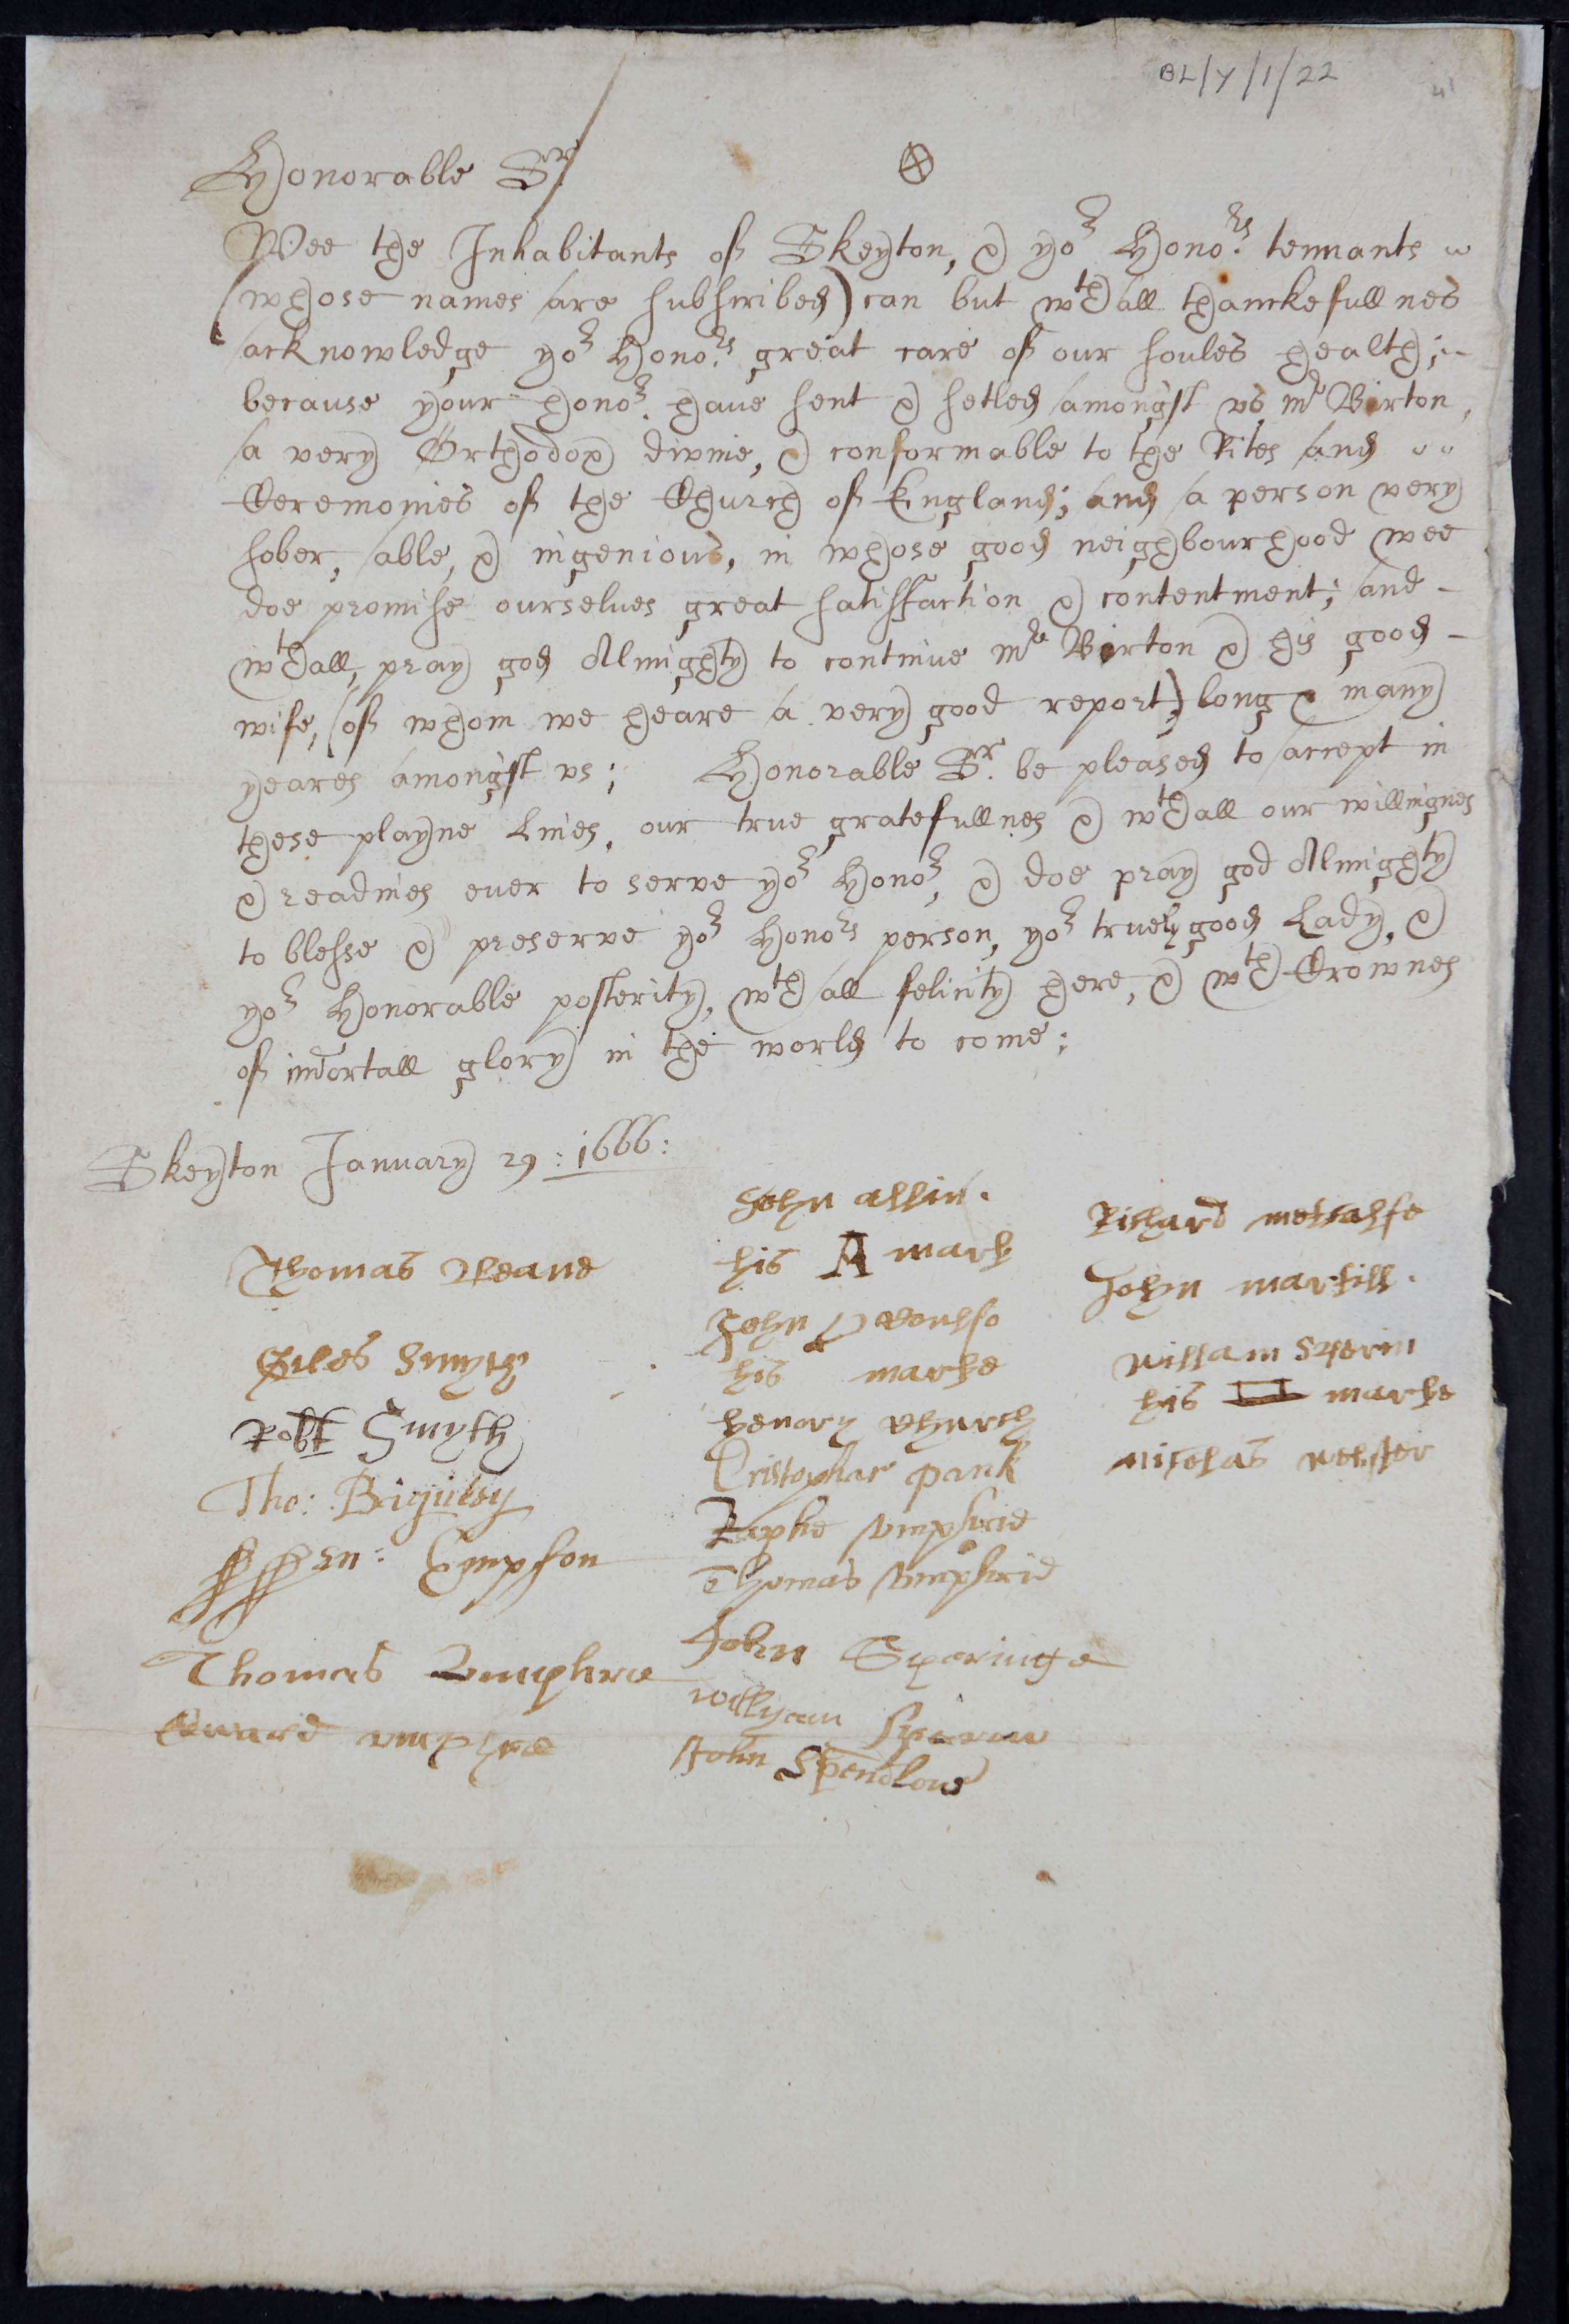 BL/Y/1/22
Honorable Sr
Wee the Inhabitants of Skeyton, & yor Honors tennants
(whose names are subscribed) can but wth all thanckefullnes
acknowledge yor Honors great care of our soules health;
because your honor have sent & setled amongst us mr Burton,
a very Orthodox divine, & conformable to the Rites and
Ceremonies of the Church of England; and a person very
sober, able, & ingenious, in whose good neighbourhood wee
doe promise ourselves great satisfaction & contentment; and
wth all, pray god Almighty to continue mr Burton & his good
wife, (of whom we heare a very good report) long & many
yeares amongst us; Honorable Sr be pleased to accept in
these playne Lines, our true gratefullnes & wth all our willingnes
& readines ever to serve yor Honor, & doe pray god Almighty
to blesse & preserve yor Honors person, yor truely good Lady, &
yor Honorable posterity, wth all felicity here, & wth Crownes
of imortall glory in the world to come;
Skeyton January 29: 1666:
Thomas Neave
Giles Smyth
Robt Smyth
Tho:
Empson
Thomas Umphrie
Edward umphre
John allin.
his A mark
John
his marke
henery Church
Cristophar pank
Raphe Umphrie
Thomas Umphrie
John Sparinge
Willyam
John Spendlove
Richard metcalfe
John martill.
William
his marke
Nicholas Webster